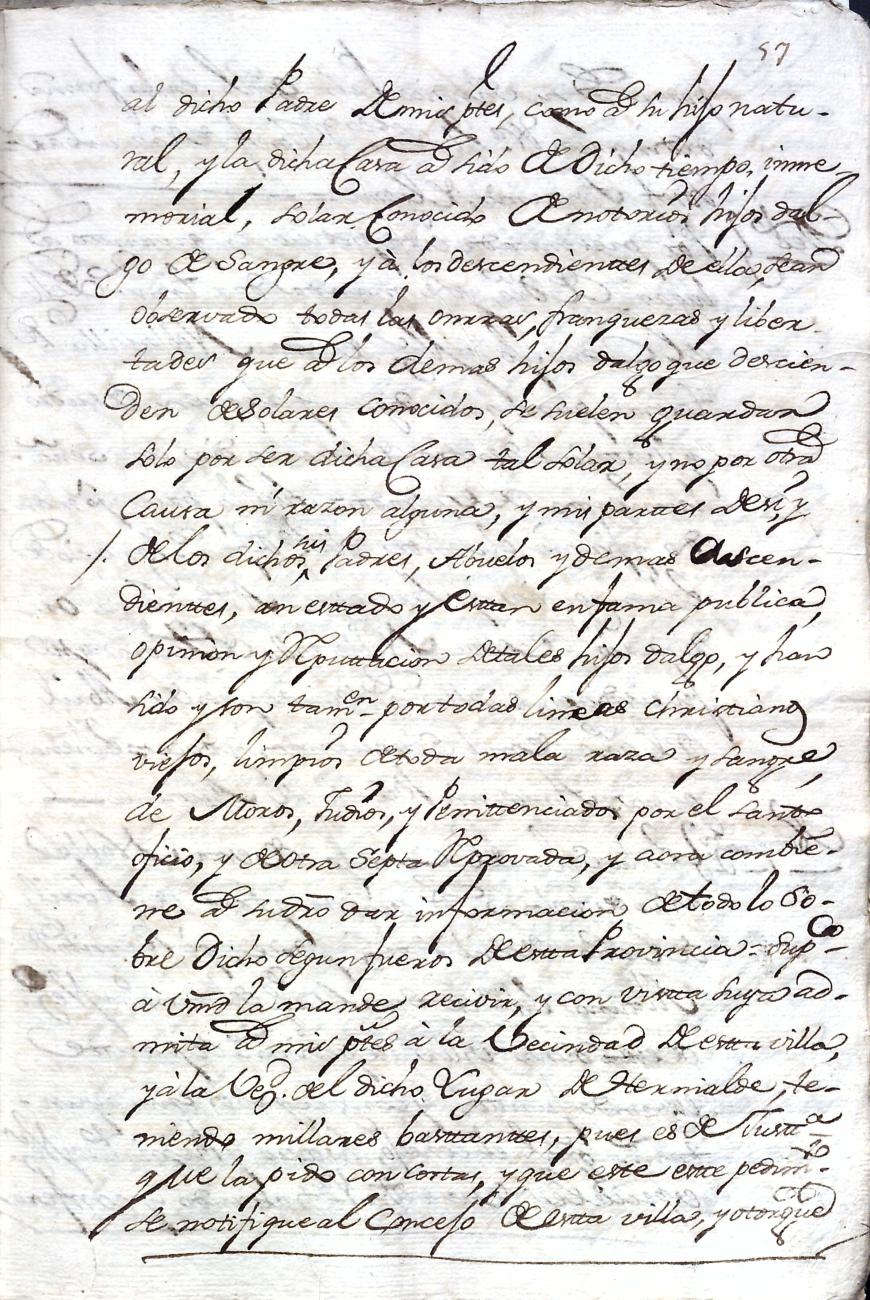 57
al dicho Padre de mis ptes, como a su hijo natu-
ral, y la dicha Casa a sido de Dicho tiempo inme-
morial, solar Conocido de notorios hijos dal-
go de Sangre, y à los descendientes de ella, sean
observado todas las onrras, franquezas y liber-
tades que a los demas hijos dalgo que descien-
den de Solares Conocidos, se suelen guardar
solo por ser dicha Casa tal solar, y no por otra
Causa ni razon alguna, y mis parttes de si, y
de los dichos sus Padres, Abuelos y demas Ascen-
dienttes, an esttado y esttan en fama publica,
opinion y Reputtacion de tales hijos dalgo, y han
sido y son tamen por todas lineas Christianos
viejos, limpios de toda mala raza y sangre,
de Moros, Judios, y Penittenciados por el Santo
oficio, y de otra Septa Reprovada, y aora combie-
ne a su dro dar informacion de todo lo So-
bre Dicho segun fueros de estta Provincia = Supco
à Vmd la mande recivir, y con vistta suya ad-
mita a mis ptes à la Vecindad de estta villa,
y à la Vezd. del dicho Lugar de Hernialde, te-
niendo millares basttanttes, pues es de Justta
que la pido con Costas, y que este estte pedimto
se notifique al Concejo de estta villa, y otorgue